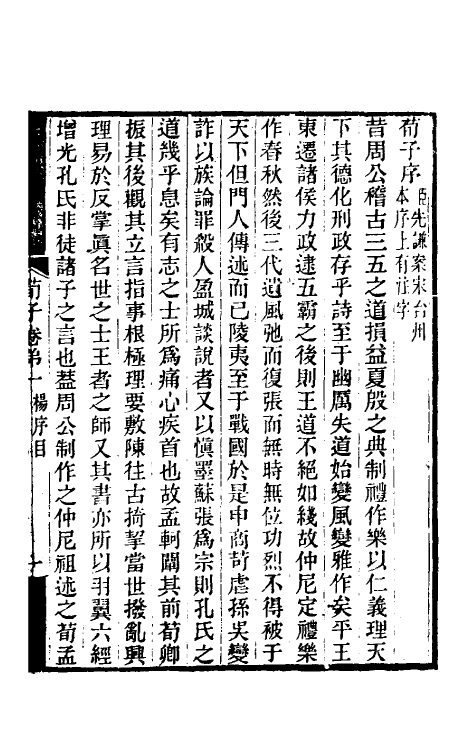 荀子序臣先謙案宋台州本序上有註字
昔周公稽古三五之道損益夏殷之典制禮作樂以仁義理天
下其德化刑政存乎詩至于幽厲失道始變風變雅作矣平王
東遷諸侯力政逮五霸之後則王道不絕如綫故仲尼定禮樂
作春秋然後三代遺風弛而復張而無時無位功烈不得被于
天下但門人傳述而已陵夷至于戰國於是申商苛虐孫吳變
詐以族論罪殺人盈城談說者又以慎墨蘇張爲宗則孔氏之
道幾乎息矣有志之士所爲痛心疾首也故孟軻闢其前荀卿
振其後觀其立言指事根極理要敷陳往古掎挈當世撥亂興
理易於反掌眞名世之士王者之師又其書亦所以羽翼六經
增光孔氏非徒諸子之言也葢周公制作之仲尼祖述之荀孟
荀子卷弟一 楊序目